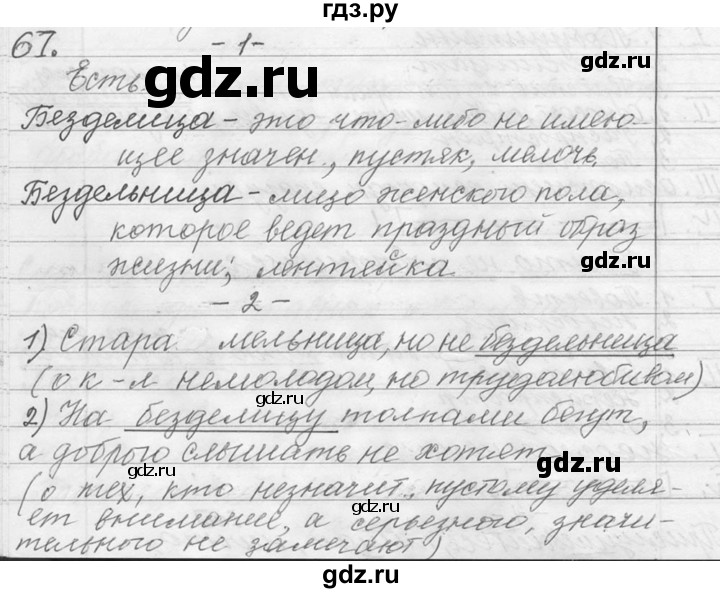 гдз.ру
67. - 1 -
Есть
gdz.ru
Безделица - это что-либо не имею-
щее значен., пустяк, мелочь.
gdz.ru
Бездельница - лицо женского пола,
которое ведет праздный образ
gdz.ru
жизни; лентяйка
- 2 -
1) Стара мельница, но не бездельница
gdz.ru
(о к-л немолодом, но трудолюбивом)
2) На безделицу толпами бегут,
а доброго слышать не хотят
gdz.ru
gdz.ru
(о тех, кто незначит., пустому уделя-
ет внимание, а серьезного, значи-
тельного не замечают)
gdz.ru
gdz.ru